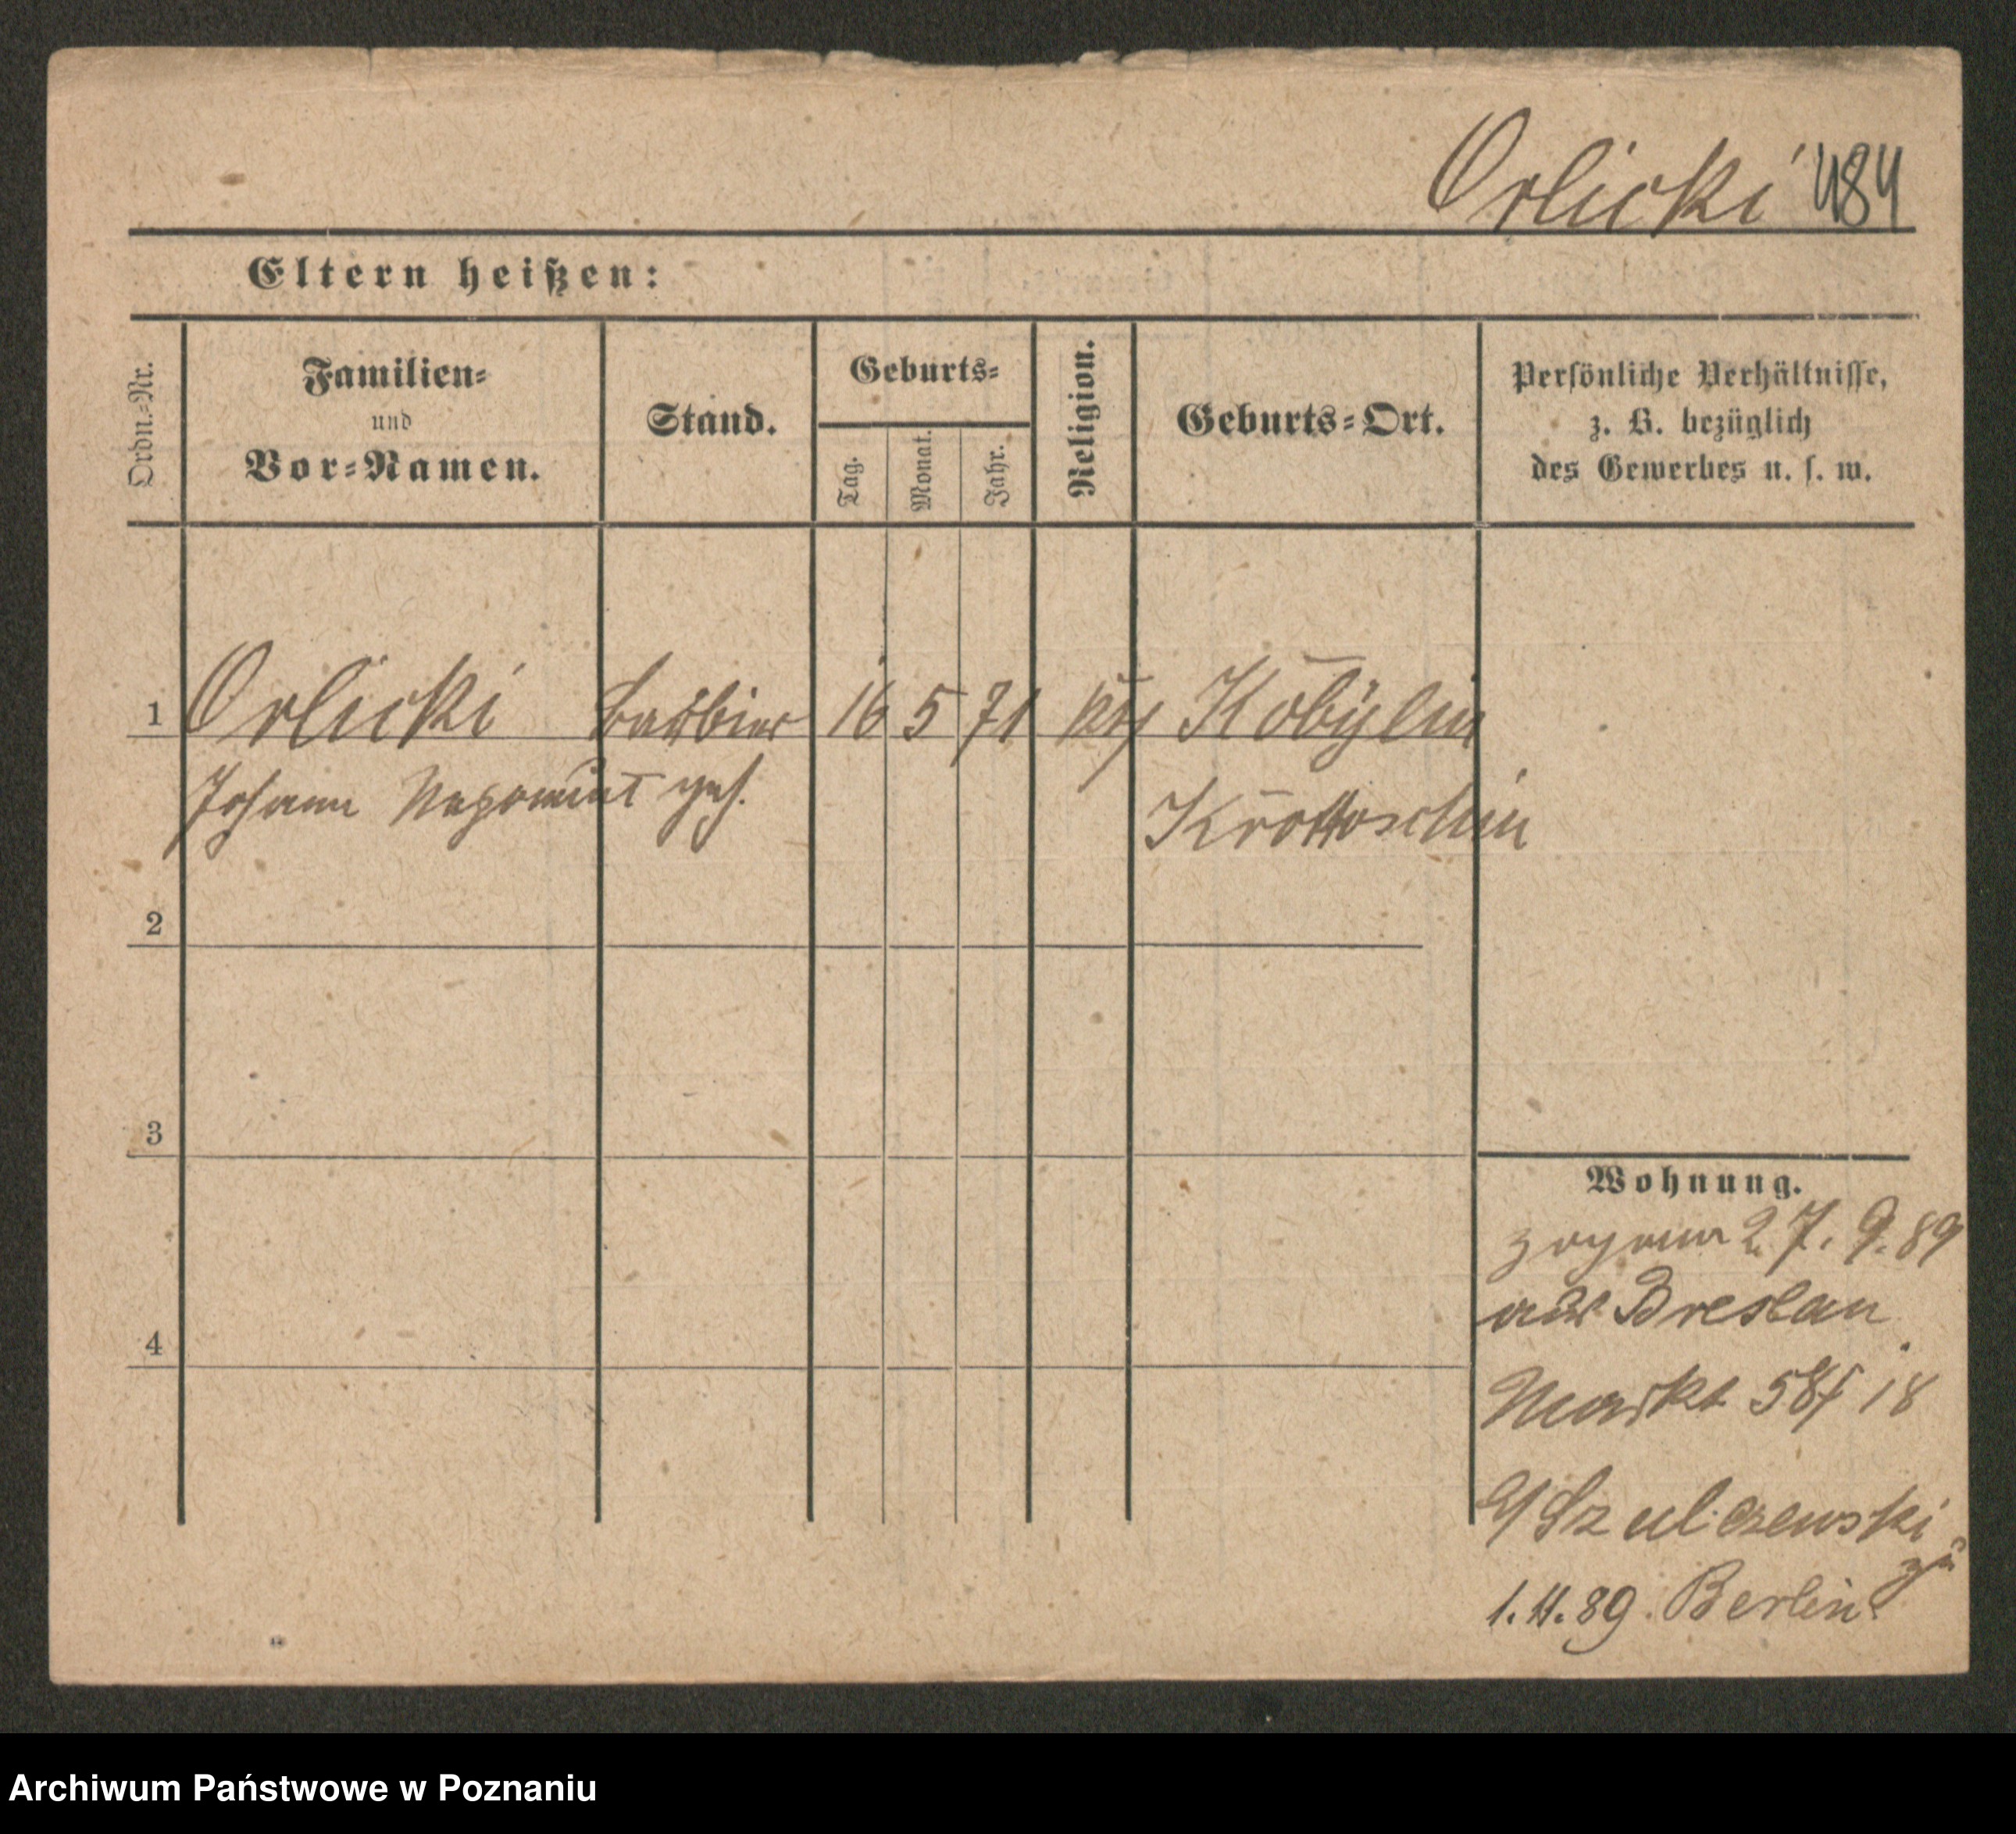 Orlicki 484
Eltern heißen:
Ordn.=Nr.
Familien=
und
Vor=Namen.
Stand.
Geburts=
Tag.
Monat.
Jahr.
Religion.
Geburts=Ort.
Persönliche Verhältnisse,
z. B. bezüglich
des Gewerbes u. s. w.
1 Orlicki Barbier 16 5 71 kth Kobylin
Johann Nepomuk geh. Krottoschin
2
3
4
Wohnung.
27. 9. 89
aus Breslau
Markt 58/ 18
b/ Szulczewski
zu
1. 11. 89. Berlin
Archiwum Państwowe w Poznaniu